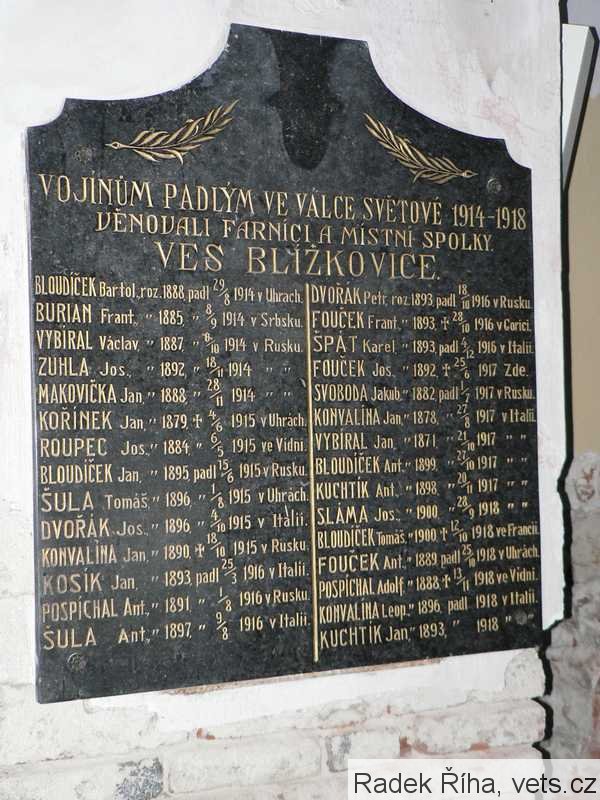 VOJÍNŮM PADLÝM VE VÁLCE SVĚTOVÉ 1914-1918
VĚNOVALI FARNÍCI A MÍSTNÍ SPOLKY.
VES BLÍŽKOVICE.
BLOUDÍČEK Bartol., roz. 1888, padl 29/8 1914 v Uhrách.
BURIAN Frant., " 1885, " 8/9 1914 v Srbsku.
VYBÍRAL Václav, " 1887 " 8/10 1914 v Rusku.
ZUHLA Jos., " 1892, " 18/11 1914 " "
MAKOVIČKA Jan, " 1888, " 28/11 1914 " "
KOŘÍNEK Jan, " 1879, ✝ 4/6 1915 v Uhrách.
ROUPEC Jos., " 1884, " 6/5 1915 ve Vídni.
BLOUDÍČEK Jan, " 1895 padl 15/6 1915 v Rusku.
ŠULA Tomáš, " 1896, " 1/8 1915 v Uhrách.
DVOŘÁK Jos., " 1896, " 4/10 1915 v Itálii.
KONVALINA Jan, " 1890, ✝ 18/10 1915 v Rusku.
KOSÍK Jan, " 1893, padl 25/3 1916 v Itálii.
POSPÍCHAL Ant., " 1891, " 1/8 1916 v Rusku.
ŠULA Ant., " 1897, " 9/8 1916 v Itálii.
DVOŘÁK Petr, roz. 1893, padl 18/10 1916 v Rusku.
FOUČEK Frant., " 1893, ✝ 28/10 1916 v Gorici.
ŠPÁT Karel, " 1893, padl 4/12 1916 v Itálii.
FOUČEK Jos., " 1892, ✝ 25/6 1917 Zde.
SVOBODA Jakub, " 1882, padl 1/7 1917 v Rusku.
KONVALÍNA Jan, " 1878, " 27/8 1917 v Itálii.
VYBÍRAL Jan, " 1871, " 21/10 1917 " "
BLOUDÍČEK Ant., " 1899, " 27/10 1917 " "
KUCHTÍK Ant., " 1898, " 29/11 1917 " "
SLÁMA Jos., " 1900, " 28/9 1918 " "
BLOUDÍČEK Tomáš, " 1900, ✝ 12/10 1918 ve Francii.
FOUČEK Ant., " 1889, padl 25/10 1918 v Uhrách.
POSPÍCHAL Adolf, " 1888, ✝ 13/11 1918 ve Vídni.
KONVALINA Leop., " 1896, padl 1918 v Itálii.
KUCHTÍK Jan, " 1893, " 1918 " "
Radek Říha, vets.cz